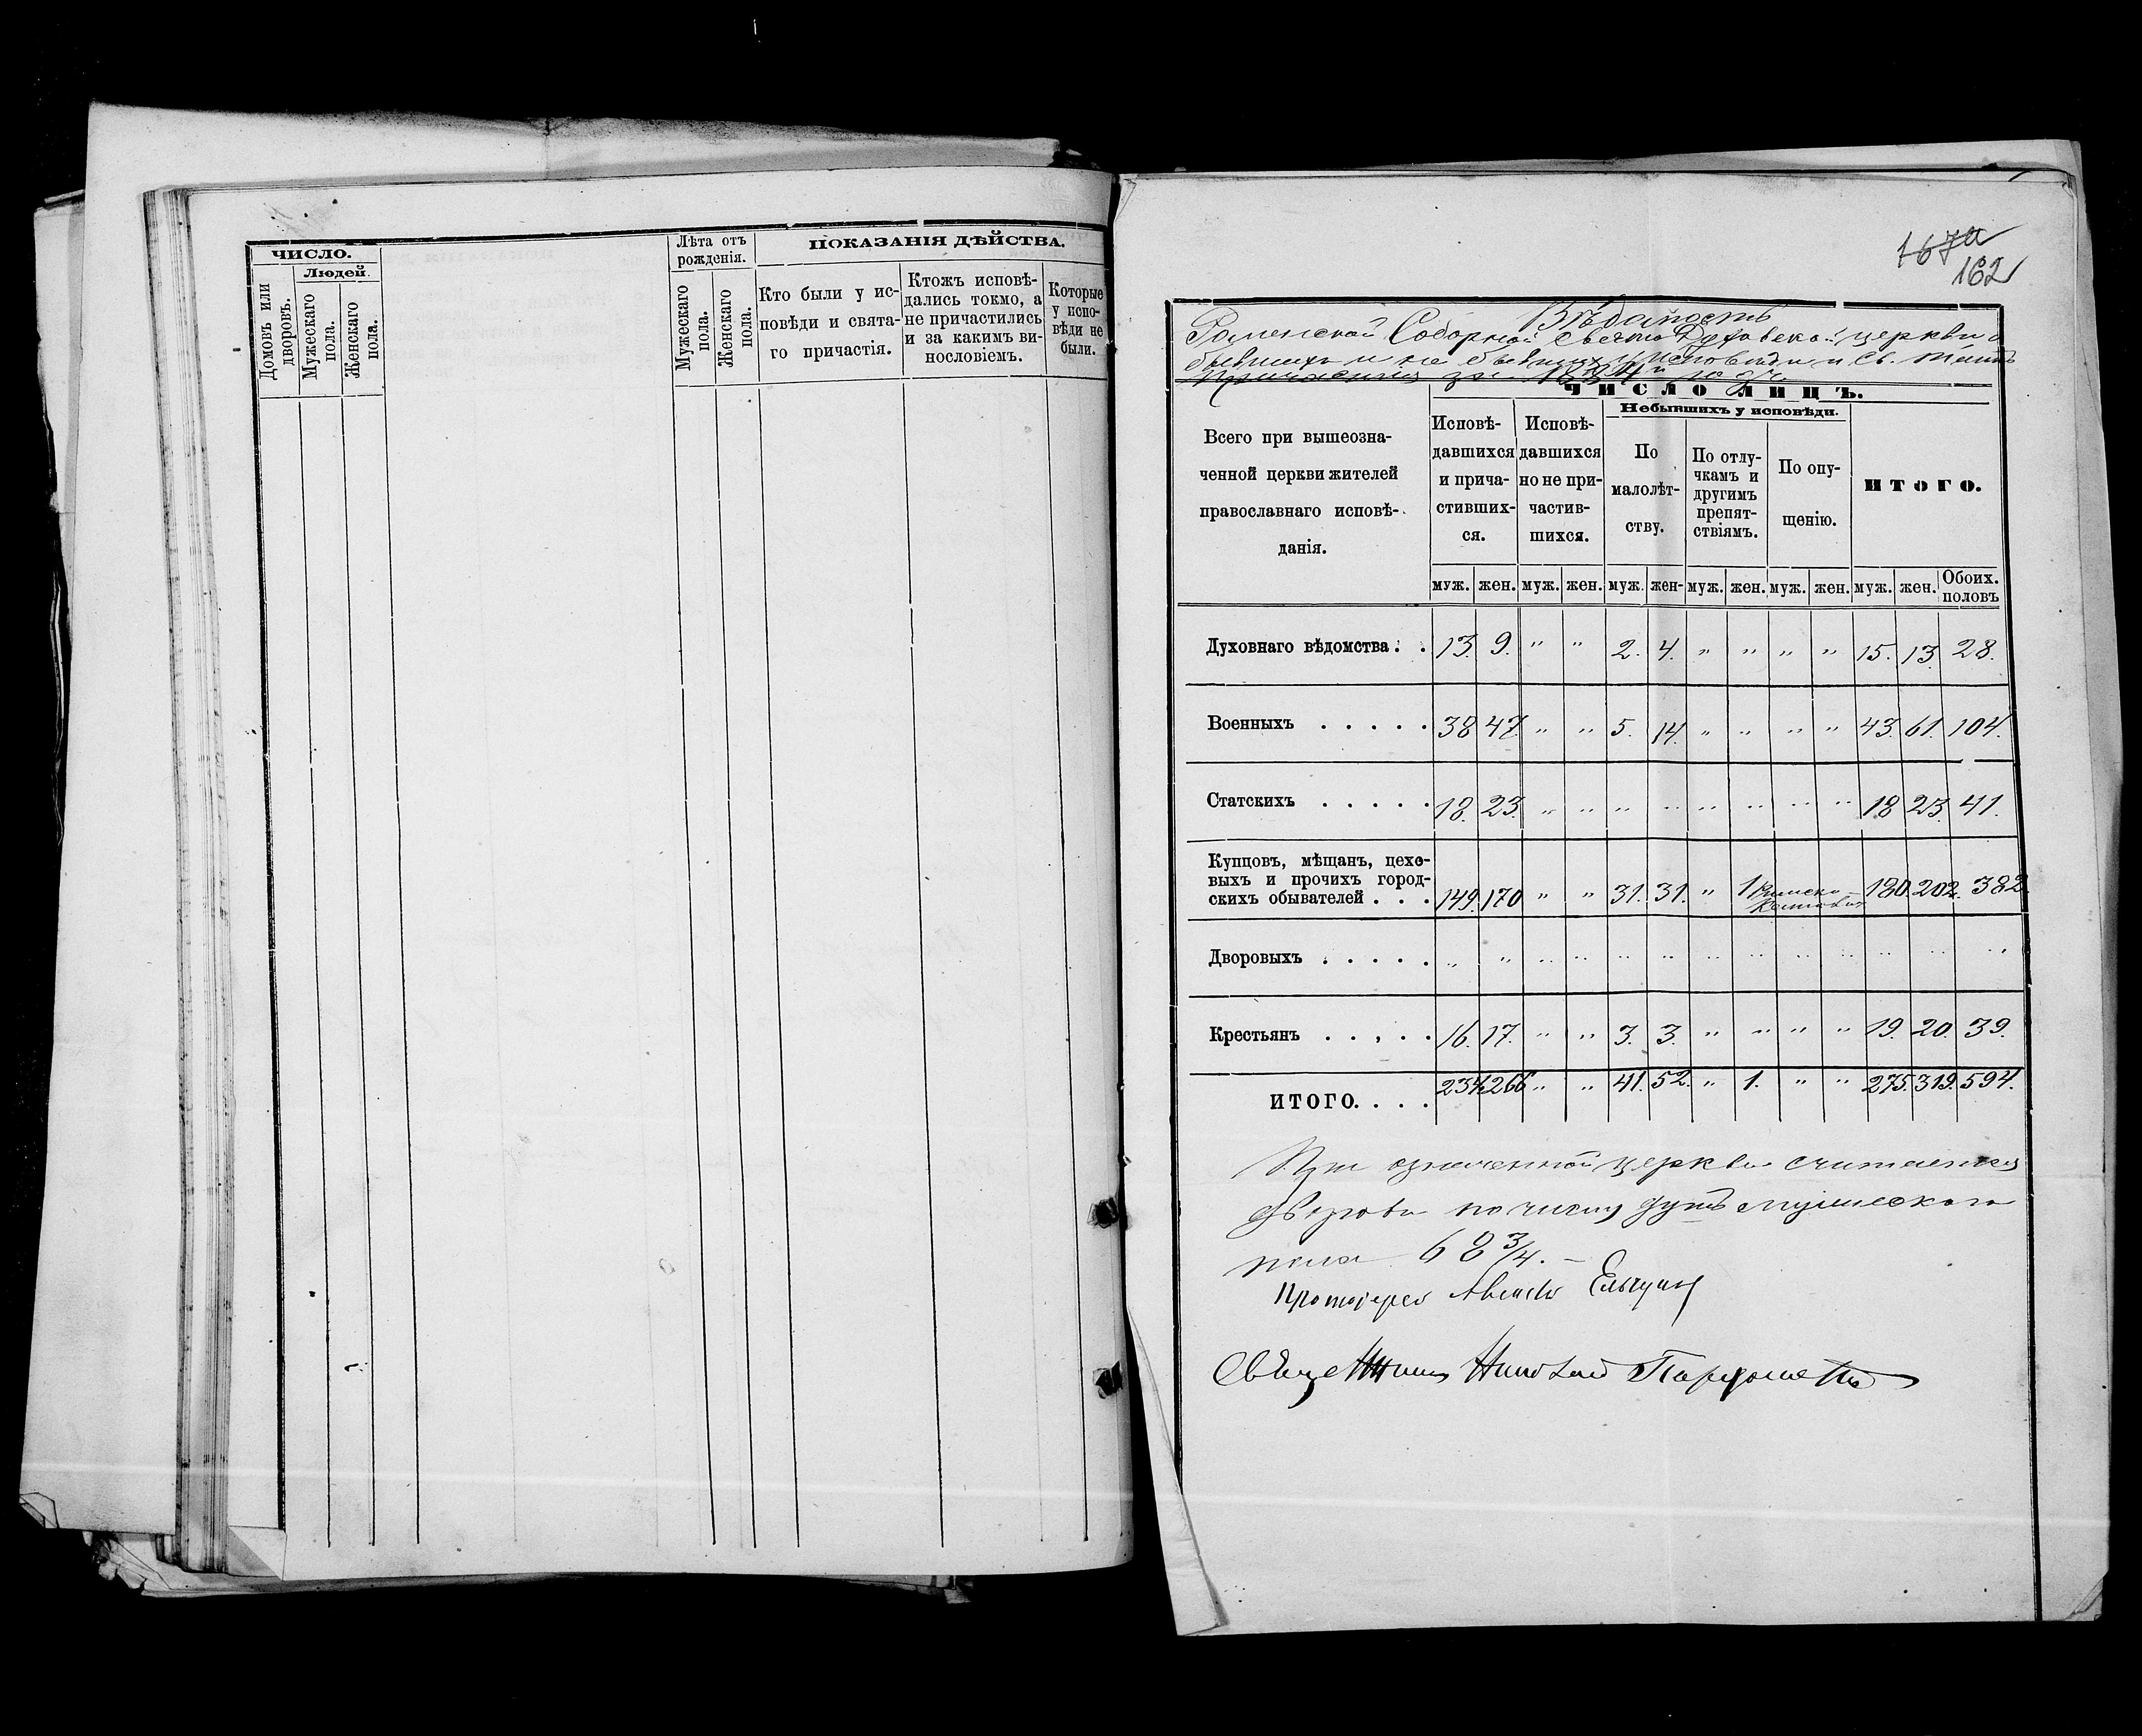 ЧИСЛО.
Домовъ или дворовъ.
Людей.
Мужескаго пола.
Женскаго пола.
Лѣта отъ
рожденія.
Мужескаго пола.
Женскаго пола.
ПОКАЗАНІЯ ДѢЙСТВА.
Кто были у ис-
повѣди и свята-
го причастія.
Ктожъ исповѣ-
дались токмо, а
не причастились
и за какимъ ви-
нословіемъ.
Которые
у испо-
вѣди не
были.
167а
162
Вѣдомость
Роменской Соборной Свято Духовской церкви о
бывшихъ и не бывшихъ у исповѣди и Св. таинъ
Причащенія за 1884й годъ.
ЧИСЛО ЛИЦЪ.
Всего при вышеозна-
ченной церкви жителей
православнаго исповѣ-
данія.
Исповѣ-
давшихся
и прича-
стивших-
ся.
Исповѣ-
давшихся
но не при-
частив-
шихся.
Небывшихъ у исповѣди.
По
малолѣт-
ству.
По отлу-
чкамъ и
другимъ
препят-
ствіямъ.
По опу-
щенію.
ИТОГО.
муж. жен. муж. жен. муж. жен- муж. жен. муж. жен. муж. жен. Обоих. половъ
Духовнаго вѣдомства . . 13. 9. " " 2. 4. " " " " 15. 13. 28.
Военныхъ . . . . . 38 47. " " 5. 14. " " " " 43. 61. 104.
Статскихъ . . . . . 18. 23. " " " " " " " " 18 23. 41.
Купцовъ, мѣщанъ, цехо-
выхъ и прочихъ город-
скихъ обывателей . . . 149. 170 " " 31. 31. " 1 Римско- 180. 202. 382.
Дворовыхъ . . . . . " " " " " " " " " " " " "
Крестьянъ . . . . . 16. 17. " " 3. 3. " " " " 19. 20. 39.
ИТОГО. . . . 234. 266 " " 41. 52. " 1. " " 275. 319. 594.
При означенной церкви считается
дворовъ по числу душъ мужескаго
пола 68 3/4. —
Протоіерей
Священникъ Николай